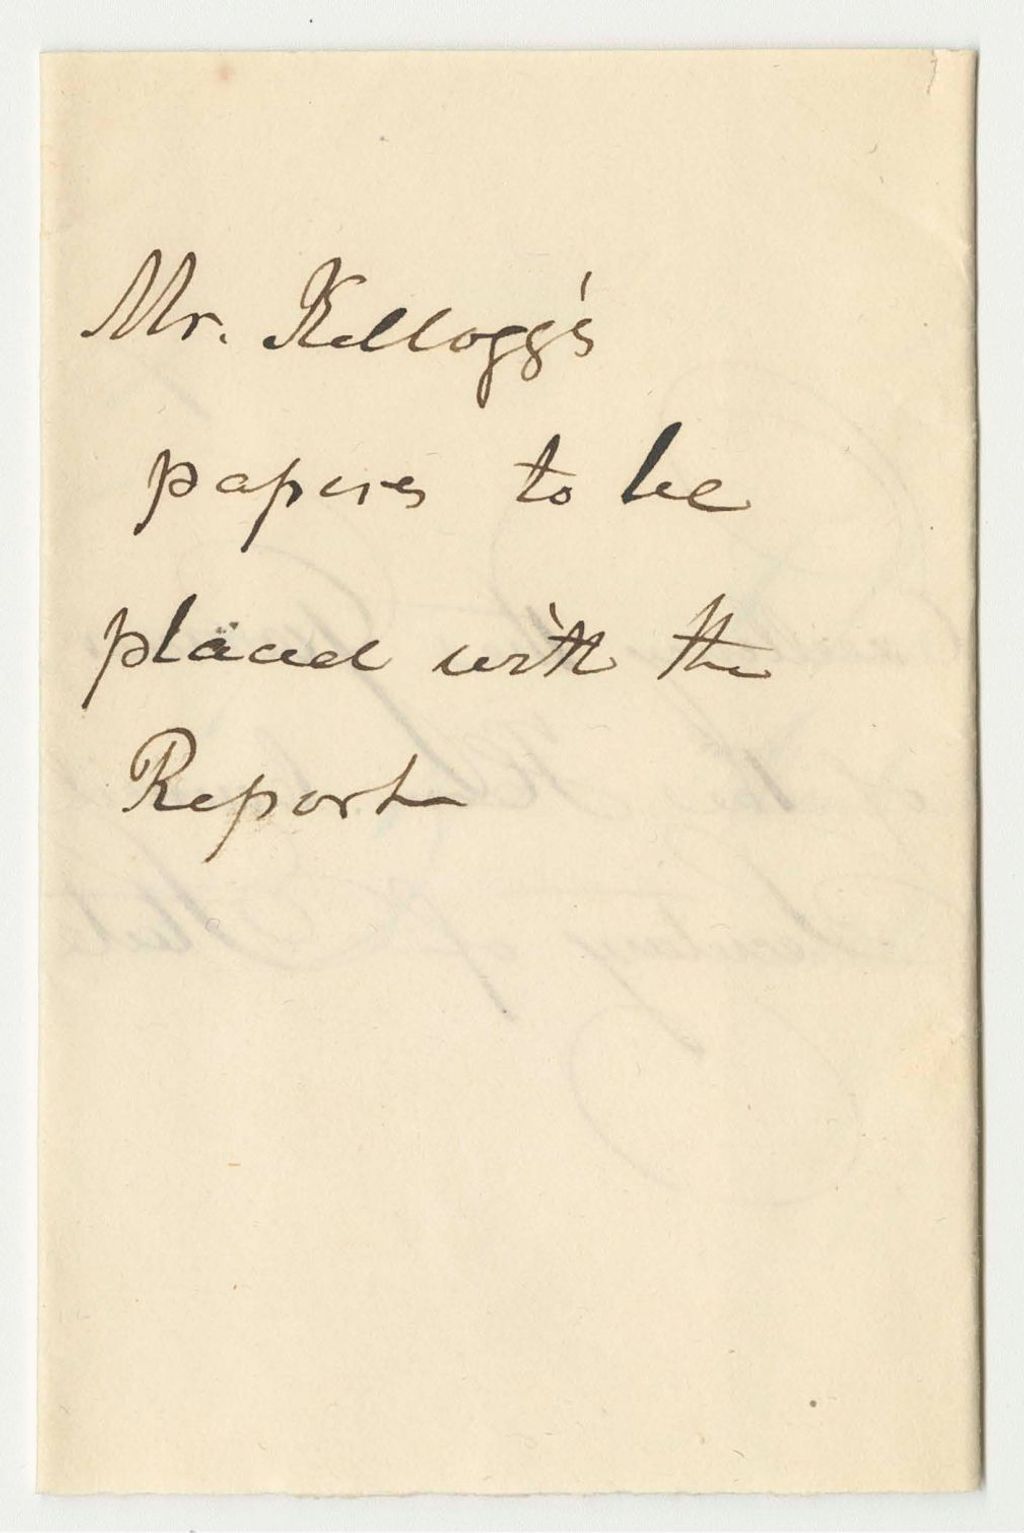 Mr. Kellogg's
papers to be
placed with the
Report